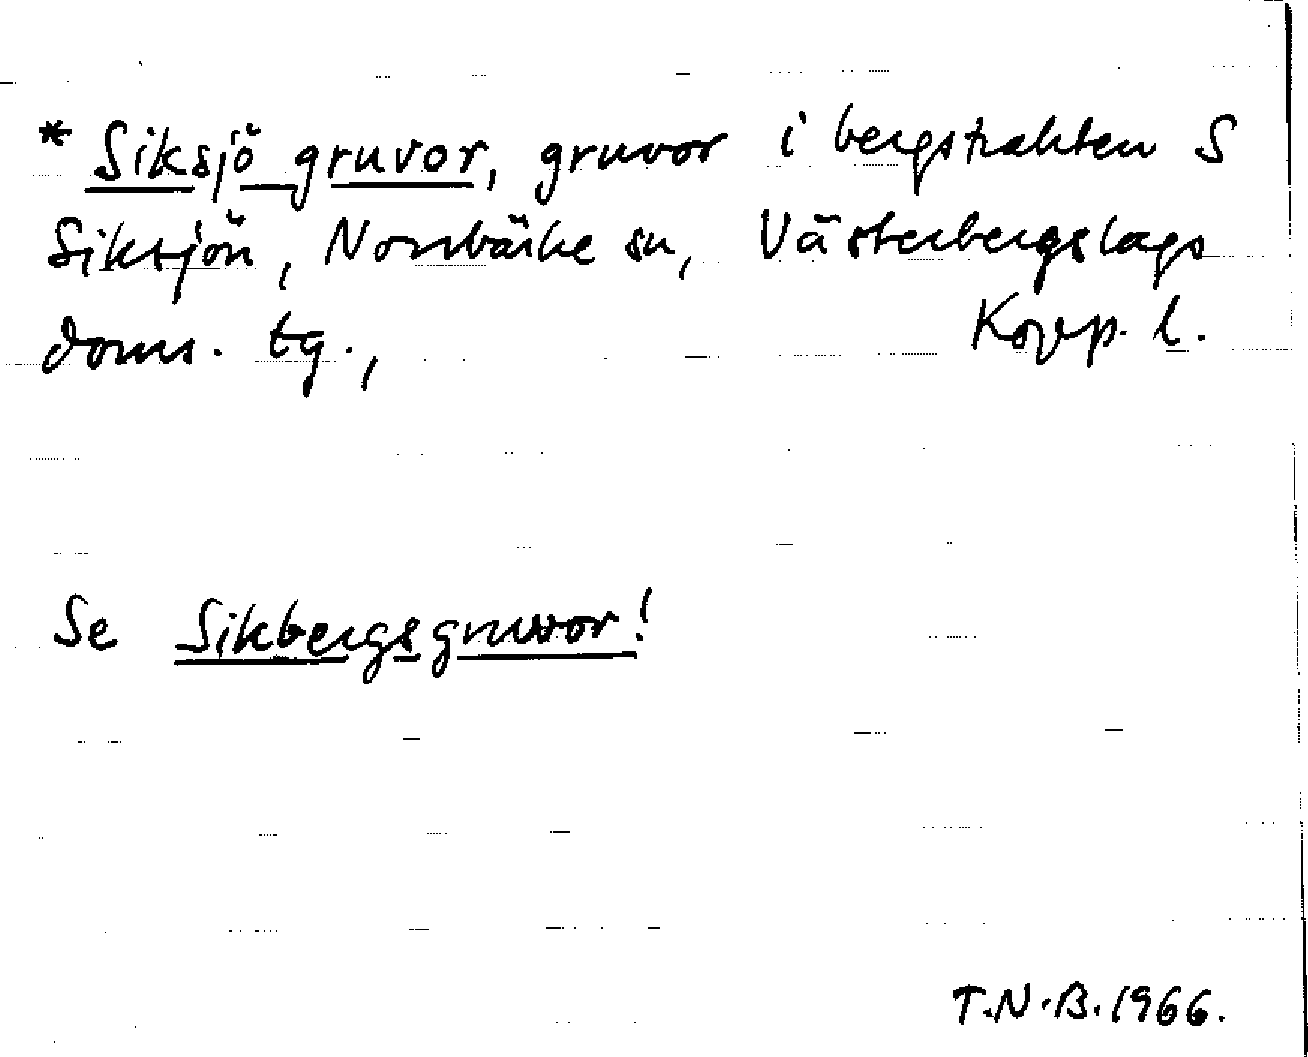 * Siksjö gruvor, gruvor i bergstrakten S
Siksjön, Norrbärke sn, Västerbergslags
doms. tg., Kopp. l.
Se Sikbergsgruvor!
T.N.B. 1966.